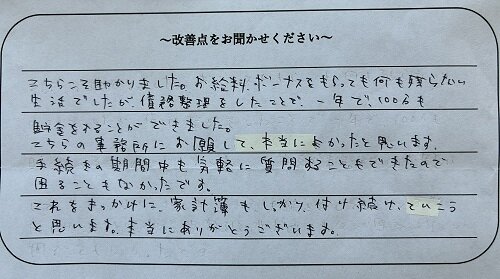 ～改善点をお聞かせください～
こちらこそ助かりました。お給料、ボーナスをもらっても何も残らない
生活でしたが、債務整理をしたことで、一年で、100万も
貯金をすることができました。
こちらの事務所にお願して、本当によかったと思います。
手続きの期間中も気軽に質問することもできたので
困ることもなかったです。
これをきっかけに、家計簿もしっかり、付け続け、ていこう
と思います。本当にありがとうございます。